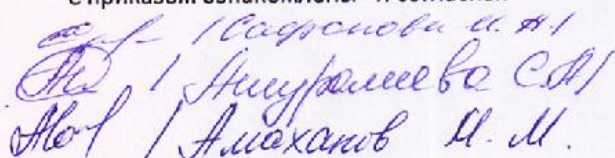 С приказом ознакомлены и согласны
/ Сафонова И. А /
/ Ашуралиева С.А/
/ Амаханов М. М.